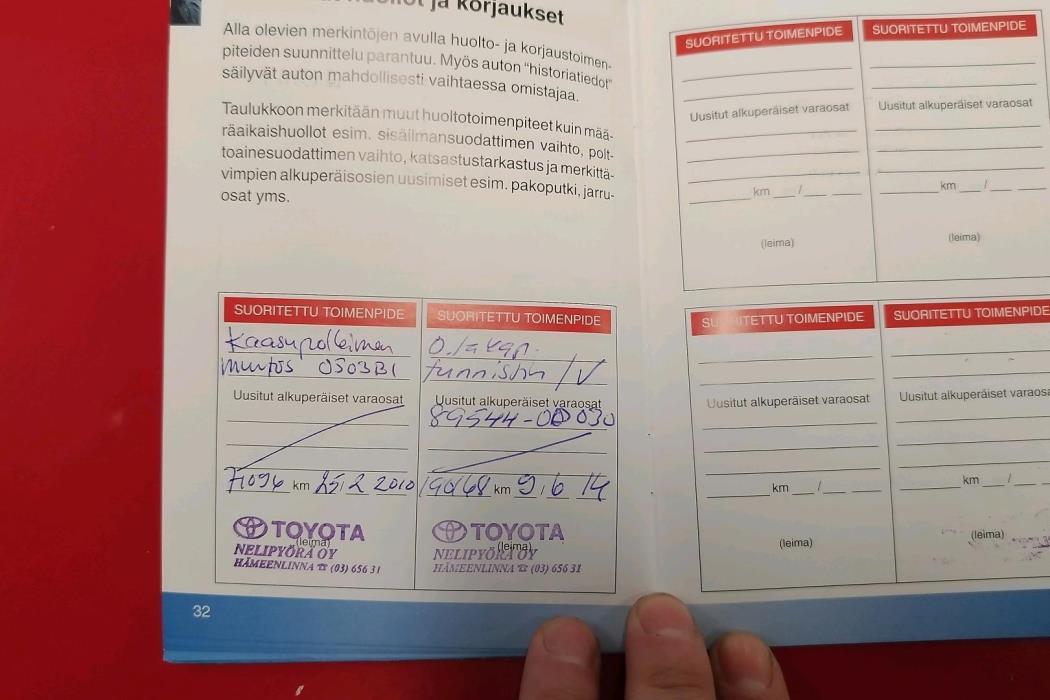 ja korjaukset
Alla olevien merkintöjen avulla huolto- ja korjaustoimen-
piteiden suunnittelu parantuu. Myös auton "historiatiedot"
säilyvät auton mahdollisesti vaihtaessa omistajaa.
Taulukkoon merkitään muut huoltotoimenpiteet kuin mää-
räaikaishuollot esim. sisäilmansuodattimen vaihto, polt-
toainesuodattimen vaihto, katsastustarkastus ja merkittä-
vimpien alkuperäisosien uusimiset esim. pakoputki, jarru-
osat yms.
SUORITETTU TOIMENPIDE
Kaasupolkimen
muutos 0503B1
Uusitut alkuperäiset varaosat
71094 km 25.2 2010
TOYOTA
(leima)
NELIPYÖRÄ OY
HÄMEENLINNA ☎ (03) 656 31
SUORITETTU TOIMENPIDE
O./akap.
tunnistin /V
Uusitut alkuperäiset varaosat
89544-0D030
190168 km 9.6 14
TOYOTA
(leima)
NELIPYÖRÄ OY
HÄMEENLINNA ☎ (03) 656 31
32
SUORITETTU TOIMENPIDE
Uusitut alkuperäiset varaosat
km /
(leima)
SUORITETTU TOIMENPIDE
Uusitut alkuperäiset varaosat
km /
(leima)
SUORITETTU TOIMENPIDE
Uusitut alkuperäiset varaosat
km /
(leima)
SUORITETTU TOIMENPIDE
Uusitut alkuperäiset varaosat
km /
(leima)